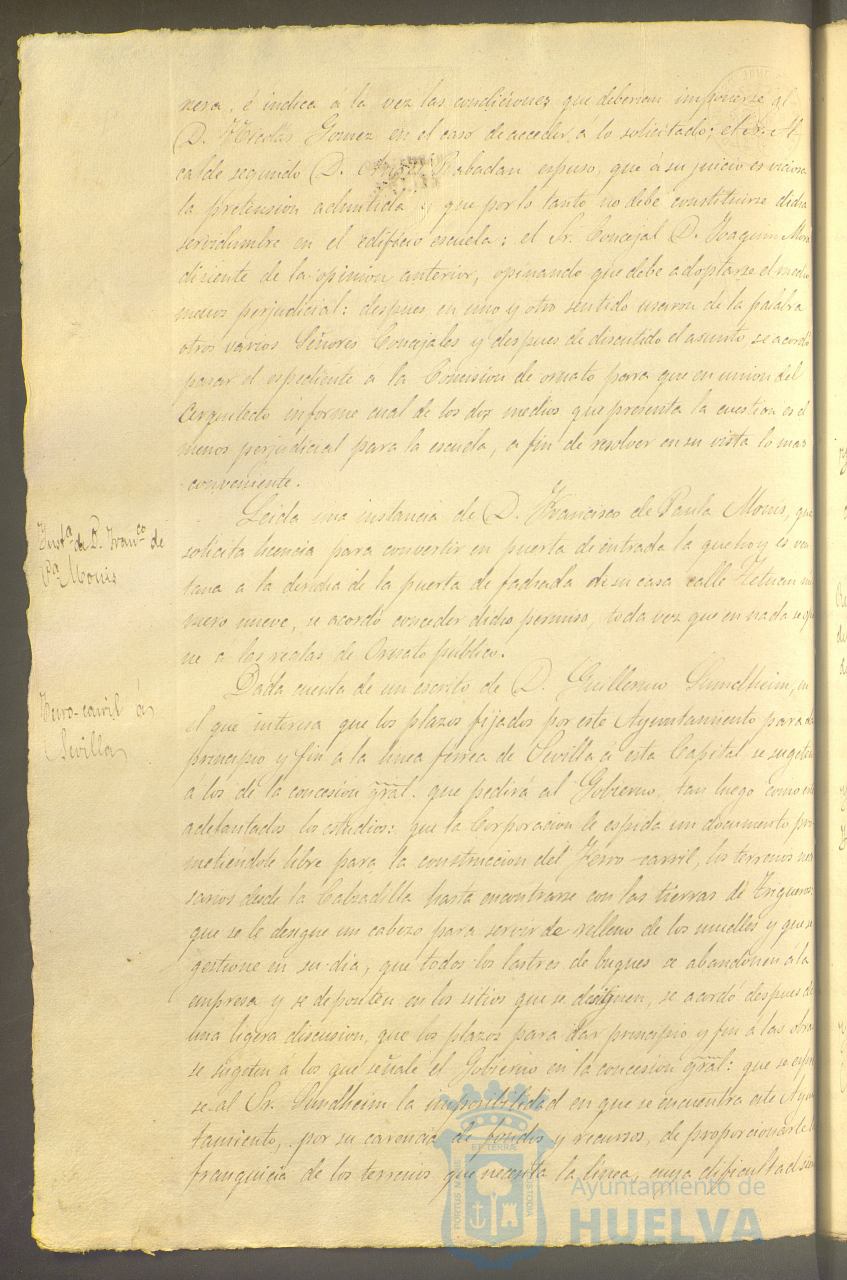 nera, é indica á la vez las condiciones que deberian imponerse al
D. Nicolás Gomez en el caso de acceder á lo solicitado; el Sr. Al
calde segundo D. Rabadan espuso, que á su juicio es viciosa
la pretension aducida y que por lo tanto no debe constituirse dicha
servidumbre en el edificio escuela: el Sr. Concejal D. Joaquin
disiente de la opinion anterior, opinando que debe adoptarse el medio
menos perjudicial: despues en uno y otro sentido usaron de la palabra
otros varios Señores Concejales y despues de discutido el asunto, se acordó
pasar el espediente á la Comision de ornato para que en union del
Arquitecto informe cual de los dos medios que presenta la cuestion es el
menos perjudicial para la escuela, a fin de resolver en su vista lo mas
conveniente.
Inst.ª de D. Fran.co de
P.ª Monis
Leida una instancia de D. Francisco de Paula Monis, que
solicita licencia para convertir en puerta de entrada la que hoy es ven
tana a la derecha de la puerta de fachada de su casa calle Tetuan nu
mero nueve, se acordó conceder dicho permiso, toda vez que en nada se opo
ne a las reglas de Ornato público.
Ferro-carril á
Sevilla
Dada cuenta de un escrito de D. Guillermo Sundheim, en
el que interesa que los plazos fijados por este Ayuntamiento para dar
principio y fin a la linea ferrea de Sevilla a esta Capital se sugeten
a los de la concesion gral. que pedirá al Gobierno, tan luego como esten
adelantados los estudios: que la Corporacion le espida un documento pro
metiéndole libre para la construccion del Ferro-carril, los terrenos nece
sarios desde la Calzadilla hasta encontrarse con las tierras de Trigueros:
que se le designe un cabezo para servir de relleno de los muelles y que se
gestione en su dia, que todos los lastres de buques se abandonen á la
empresa y se depositen en los sitios que se designen, se acordó despues de
una ligera discusion, que los plazos para dar principio y fin á las obras
se sugeten á los que señale el Gobierno en la concesion gral: que se espre
se al Sr. Sundheim la imposibilidad en que se encuentra este Ayun
tamiento, por su carencia de fondos y recursos, de proporcionarle la
franquicia de los terrenos que necesita la linea, cuya dificultad
PORTUS
ET TERRÆ
CUSTODIA
Ayuntamiento de
HUELVA